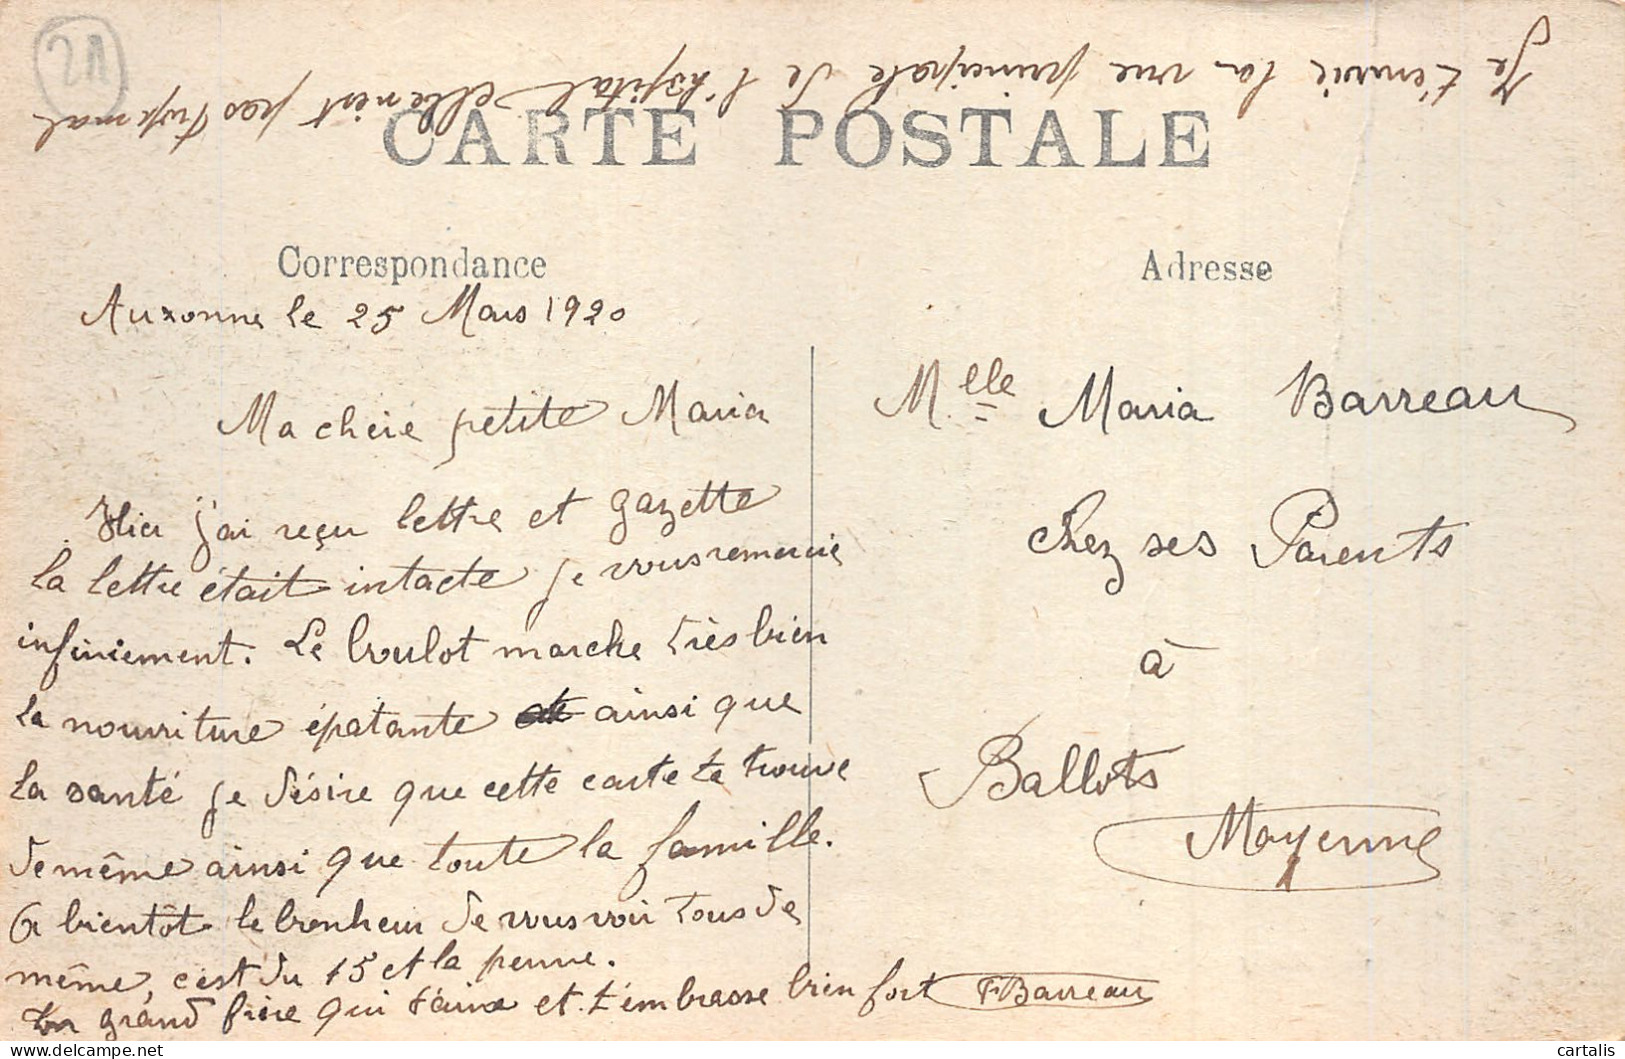 21
Je t'envoie la vue principale de l'hôpital elle n'est pas trop mal
CARTE POSTALE
Correspondance
Adresse
Auxonne le 25 Mars 1920
Ma chère petite Maria
Hier j'ai reçu lettre et gazette
la lettre était intacte je vous remercie
infiniement. Le boulot marche très bien
la nourriture épatante ainsi que
la santé je désire que cette carte te trouve
de même ainsi que toute la famille.
A bientôt le bonheur de vous voir tous de
même, c'est du 15 et la
ton grand frère qui t'aime et t'embrasse bien fort F Barreau
Mlle Maria Barreau
Chez ses Parents
à
Ballots
Mayenne
cartalis